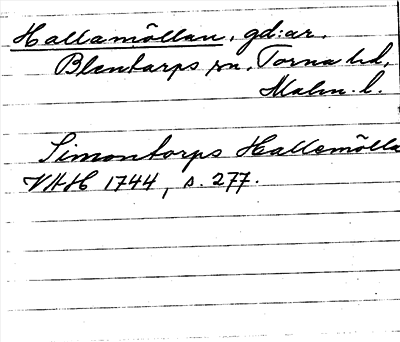 Hallamöllan, gd:ar.
Blentarps sn, Torna hd,
Malm. l.
Simontorps Hallemölla
VHH 1744, s. 277.